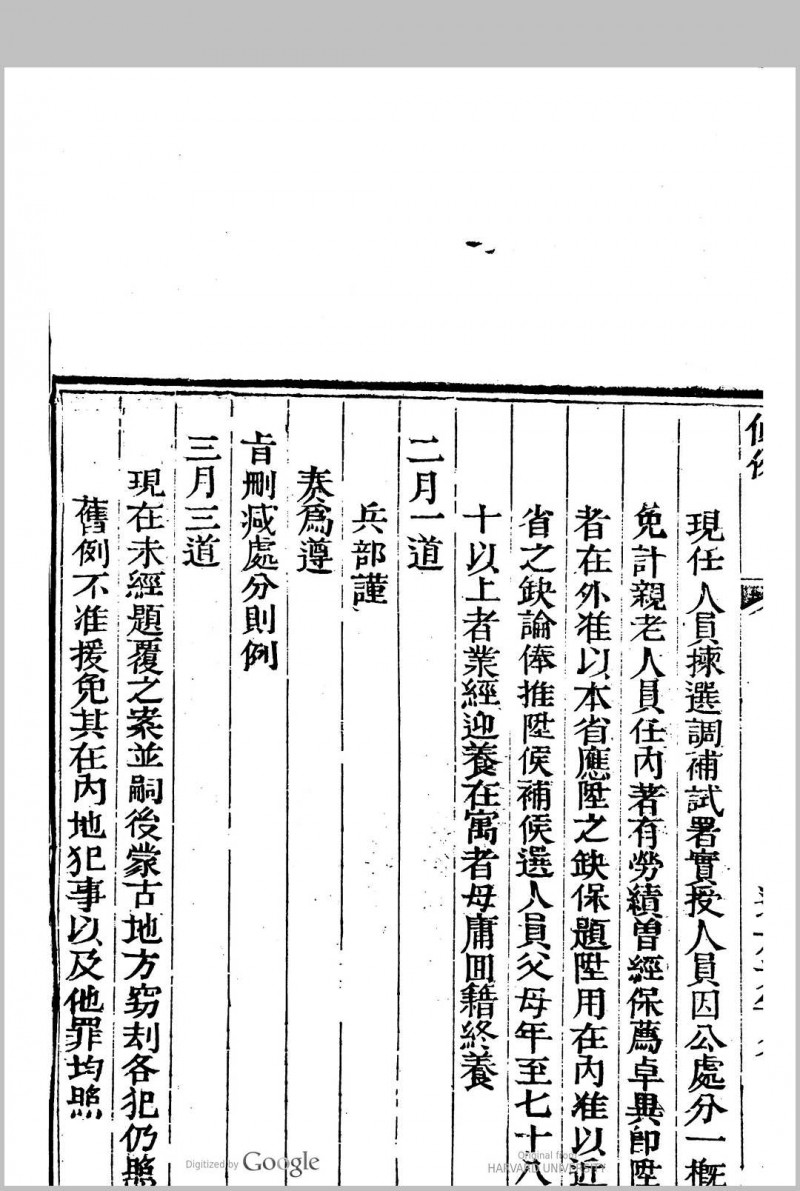 現任人員揀選調補試署實授人員因公處分一概
免計親老人員任內著有勞績曾經保薦卓異卽陞
者在外准以本省應陞之缺保題陞用在內准以近
省之缺論俸推陞候補候選人員父母年至七十八
十以上者業經迎養在寓者毋庸囘籍終養
二月一道
兵部謹
奏爲遵
旨刪减處分則例
三月三道
現在未經題覆之案並嗣後蒙古地方竊刦各犯仍照
舊例不准援免其在內地犯事以及他罪均照
Digitized by Google
Original from
HARVARD UNIVERSITY